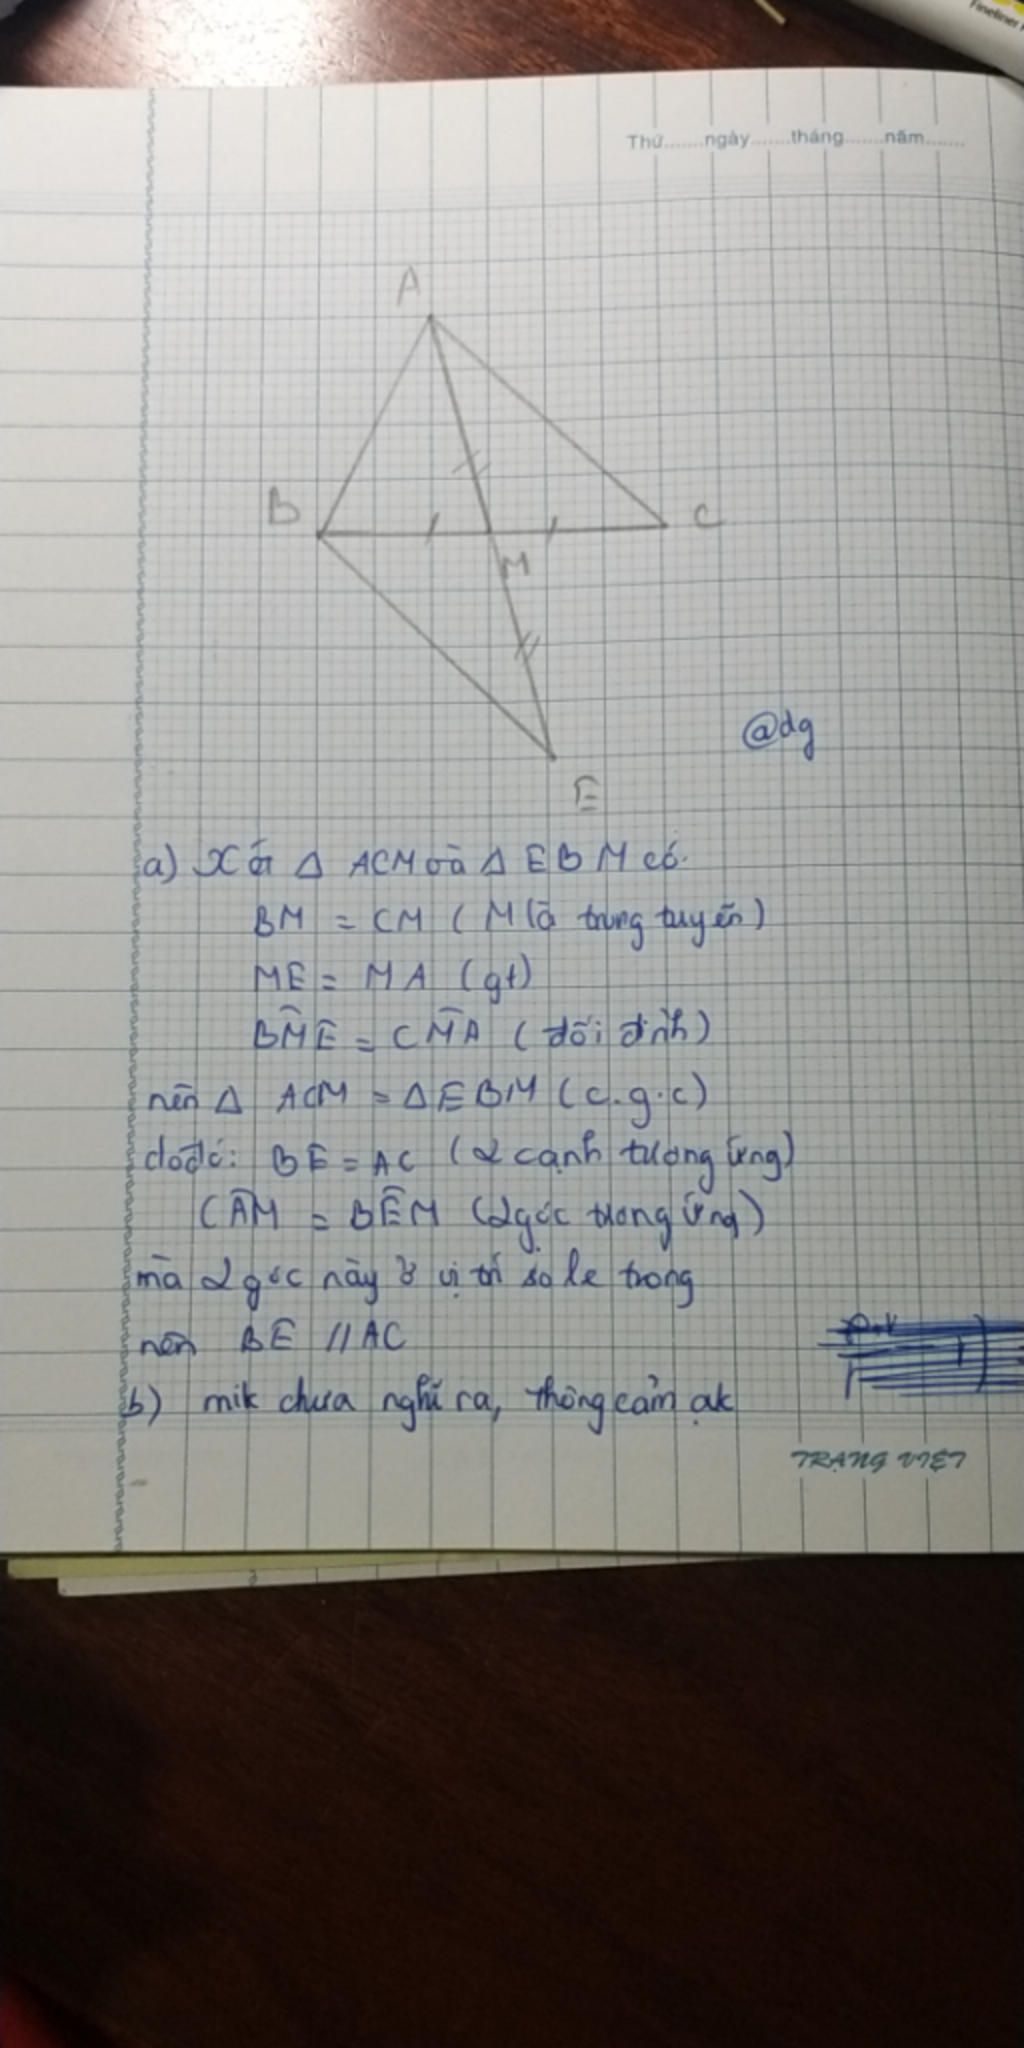 Fineliner
Thứ.......ngày.......tháng.......năm.......
A
B
C
M
E
@dg
a) Xét △ ACM và △ EBM có.
BM = CM ( M là trung tuyến )
ME = MA (gt)
BM̂E = CM̂A ( đối đỉnh )
nên △ ACM = △EBM ( c.g.c )
do đó: BE = AC ( 2 cạnh tương ứng)
CÂM = BÊM (2 góc tương ứng)
mà 2 góc này ở vị trí so le trong
nên BE // AC
b) mik chưa nghĩ ra, thông cảm ak
TRANG VIET